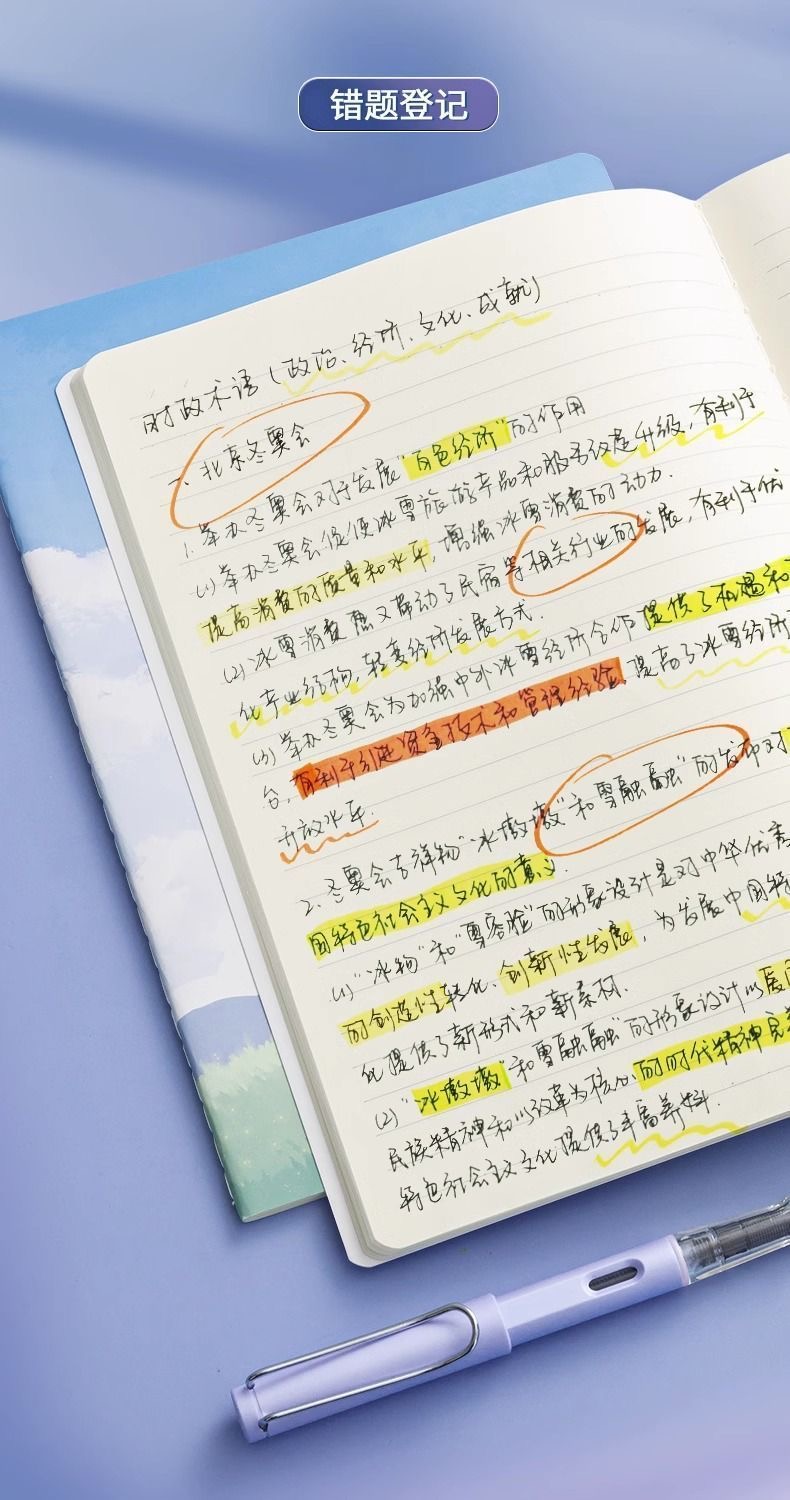 错题登记
时政术语（政治、经济、文化、成就）
一、北京冬奥会
1. 举办冬奥会对于发展"白色经济"的作用
(1) 举办冬奥会促使冰雪旅游产品和服务改造升级，有利于
提高消费的质量和水平，增强冰雪消费的动力.
(2) 冰雪消费惠又带动了民宿等相关行业的发展，有利于优
化产业结构，转变经济发展方式.
(3) 举办冬奥会为加强中外冰雪经济合作提供了和
台，有利于引进资金技术和管理经验，提高了冰雪经济
开放水平.
2. 冬奥会吉祥物"冰墩墩"和雪融融"的发布对
国特色社会主义文化的意义.
(1) "冰物"和"雪容融"的形象设计是对中华优秀
的创造性转化、创新性发展，为发展中国特
化提供了新形式和新素材.
(2) "冰墩墩"和雪融融"的形象设计以
民族精神和以改革为核心的时代精神
特色社会主义文化提供了丰富养料.